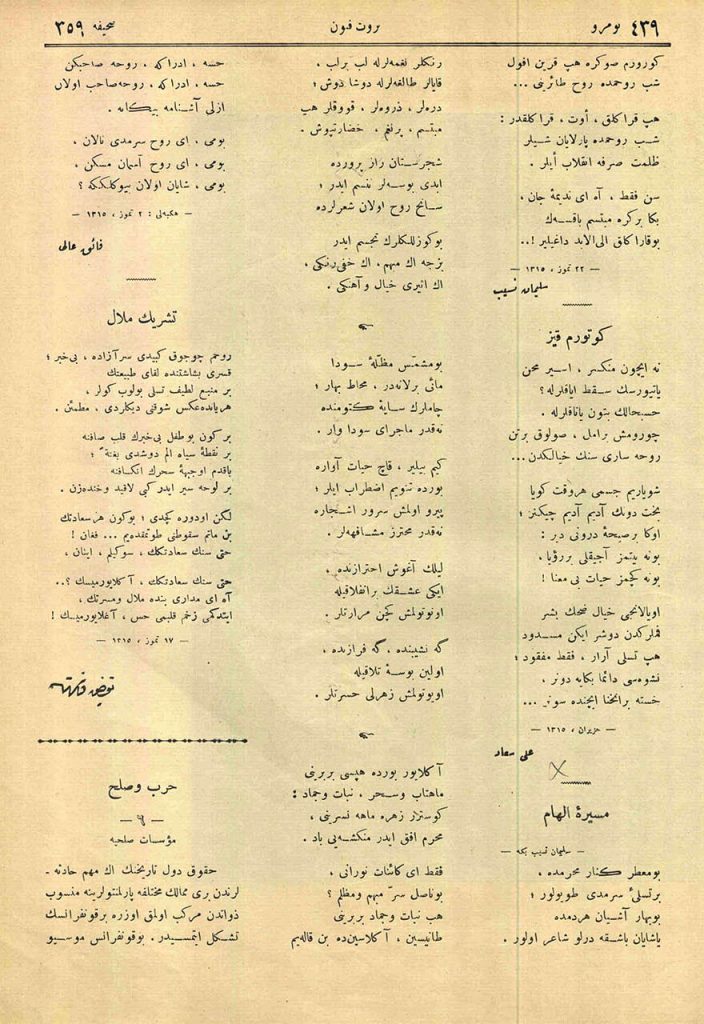 ٤٣٩ نومرو
ثروت فنون
صحیفه ٣٥٩
كوروزم صوكره هپ قرین افول
شب روحمده روح طائرنی ...
هپ قراكلق ، أوت ، قراكلقدر :
شب روحمده پارلایان شیلر
ظلمت صرفه انقلاب أیلر .
سن فقط ، آه ای ندیمهٔ جان ،
بكا بركره مبتسم باقسه‌ك
بوقاراكلق الی‌الابد داغیلیر !..
— ٢٢ تموز ، ١٣١٥ —
سلیمان نسیب
كوتورم قیز
نه ایچون منكسر ، اسیر محن
یاتیورسك سقط ایاقلرله ؟
حسبحالك بتون یاتاقلرله .
چورومش برامل ، صولوق برتن
روحه ساری سنك خیالكدن ...
شویاریم جسمی هروقت كویا
بخت دونك آدیم آدیم چیكنر ؛
اوكا برصبحهٔ درونی دیر :
بونه بیتمز آجیقلی بررؤیا ،
بونه كچمز حیات بی معنا !
اویالانجی خیال ضحك بشر
فملركدن دوشر ایكن مسدود
هپ تسلی آرار ، فقط مفقود ؛
نشوه‌سی دائما بكایه دونر ،
خسته برانحنا ایچنده سونر ...
— حزیران ، ١٣١٥ —
علی سعاد
مسیرهٔ الهام
— سلیمان نسیب بكه —
بومعطر كنار محرمده ،
برتسلیٔ سرمدی طوبولور ؛
بوبهار آشیان هردمده
یاشایان باشقه درلو شاعر اولور .
رنكلر نغمه‌لرله لب برلب ،
قایالر طالغه‌لرله دوشا دوش ؛
دره‌لر ، ذروه‌لر ، قووقلر هپ
مبتسم ، پرنغم ، خضارتپوش .
شجرستان راز پرورده
ابدی بوسه‌لر تنسم ایدر ؛
سانح روح اولان شعرلرده
بوكوزللكلرك تجسم ایدر
بزجه اك مبهم ، اك خفی رنكی ،
اك اثیری خیال و آهنكی .
بومشمس مظلهٔ سودا
مائی برلانه‌در ، محاط بهار ؛
چاملرك سایهٔ كتومنده
نه‌قدر ماجرای سودا وار .
كیم بیلیر ، قاچ حیات آواره
بورده تنویم اضطراب ایلر ؛
پیرو اولمش سرور اشجاره
نه‌قدر محترز مشافهه‌لر .
لیلك آغوش احترازنده ،
ایكی عشقك برانفلاقیله
اونوتولمش كچن مرارتلر .
كه نشیبنده ، كه فرازنده ،
اولین بوسهٔ تلاقیله
اویوتولمش زهرلی حسرتلر .
آكلایور بورده هپسی بربرینی
ماهتاب وسحر ، نبات وجماد :
كوسترر زهره ماهه نسرینی ،
محرم افق ایدر منكشه‌یی باد .
فقط ای كائنات نورانی ،
بوناصل سرّ مبهم ومظلم ؟
هپ نبات وجماد بربرینی
طانیسین ، آكلاسین‌ده بن قاله‌یم
حسه ، ادراكه ، روحه صاحبكن
حسه ، ادراكه ، روح‌صاحب اولان
ازلی آشنامه بیكانه .
بومی ، ای روح سرمدی نالان ،
بومی ، ای روح آسمان مسكن ،
بومی ، شایان اولان بیوكلككه ؟
— هكبه‌لی : ٢ تموز ، ١٣١٥ —
فائق عالی
تشریك ملال
روحم چوجوق كبیدی سرآزاده ، بی‌خبر ؛
قسری بشاشتنده لقای طبیعتك
بر منبع لطیف تسلی بولوب كولر ،
هریانده‌عكس شوقنی دیكلردی ، مطمئن .
بر كون بوطفل بی‌خبرك قلب صافنه
بر نقطهٔ سیاه الم دوشدی بغتةً ؛
باقدم اوجبههٔ سحرك انكسافنه
بر لوحه سیر ایدر كبی لاقید وخنده‌زن .
لكن اودوره كچدی ؛ بوكون هرسعادتك
بن ماتم سقوطنی طوتمقده‌یم ... فغان !
حتی سنك سعادتكك ، سوكیلم ، اینان ،
حتی سنك سعادتكك ، آكلایورمیسك ؟..
آه ای مداری بنده ملال ومسرتك ،
ایتدكمی زخم قلبمی حس ، آغلایورمیسك !
— ١٧ تموز ، ١٣١٥ —
توفیق فكرت
حرب وصلح
— ٩ —
مؤسسات صلحیه
حقوق دول تاریخنك اك مهم حادثه‌-
لرندن بری ممالك مختلفه پارلمنتولرینه منسوب
ذواتدن مركب اولمق اوزره برقونفرانسك
تشكل ایتمسیدر . بوقونفرانس موسیو